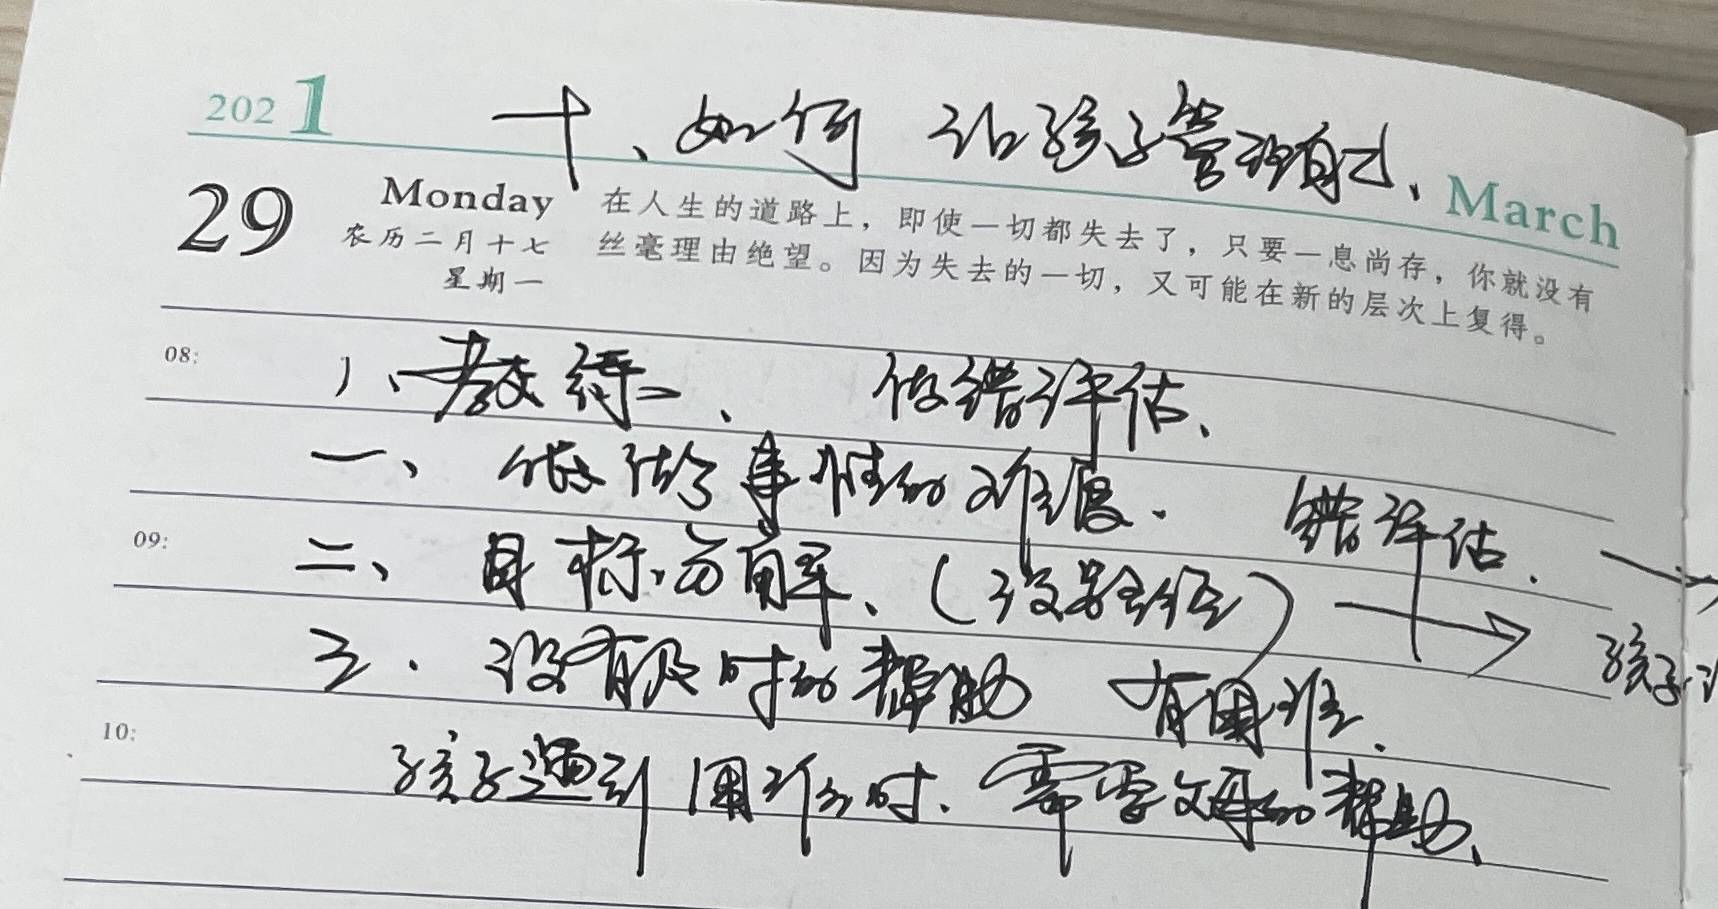 2021
十、如何 让孩子管理自己、
March
29
Monday
农历二月十七
星期一
在人生的道路上，即使一切都失去了，只要一息尚存，你就没有
丝毫理由绝望。因为失去的一切，又可能在新的层次上复得。
08:
1、教练、 做错评估、
一、 做事性的难度. 错评估.
09:
二、目标分解、(没路径)
三.没有及时的帮助 有困难.
孩子
10:
孩子遇到困难时.需要父母的帮助、